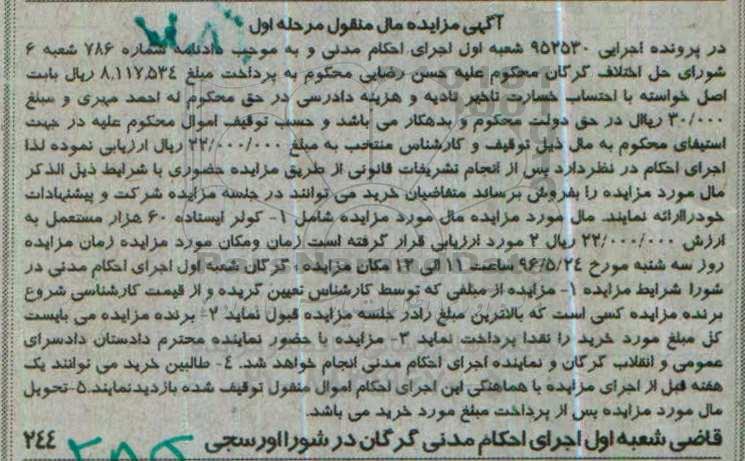 آگهی مزایده مال منقول مرحله اول
در پرونده اجرایی ۹۵۲۵۳۰ شعبه اول اجرای احکام مدنی و به موجب دادنامه شماره ۷۸۶ شعبه ۶
شورای حل اختلاف گرگان محکوم علیه حسن رضایی محکوم به پرداخت مبلغ ۸,۱۱۷,۵۳۴ ریال بابت
اصل خواسته با احتساب خسارت تاخیر تادیه و هزینه دادرسی در حق محکوم له احمد مهری و مبلغ
۳۰/۰۰۰ ریال در حق دولت محکوم و بدهکار می باشد و حسب توقیف اموال محکوم علیه در جهت
استیفای محکوم به مال ذیل توقیف و کارشناس منتخب به مبلغ ۲۲/۰۰۰/۰۰۰ ریال ارزیابی نموده لذا
اجرای احکام در نظر دارد پس از انجام تشریفات قانونی از طریق مزایده حضوری با شرایط ذیل الذکر
مال مورد مزایده را بفروش برساند متقاضیان خرید می توانند در جلسه مزایده شرکت و پیشنهادات
خودراارائه نمایند. مال مورد مزایده مال مورد مزایده شامل ۱- کولر ایستاده ۶۰ هزار مستعمل به
ارزش ۲۲/۰۰۰/۰۰۰ ریال ۲ مورد ارزیابی قرار گرفته است زمان ومکان مورد مزایده زمان مزایده
روز سه شنبه مورخ ۹۶/۵/۲۴ ساعت ۱۱ الی ۱۲ مکان مزایده : گرگان شعبه اول اجرای احکام مدنی در
شورا شرایط مزایده ۱- مزایده از مبلغی که توسط کارشناس تعیین گردیده و از قیمت کارشناسی شروع
برنده مزایده کسی است که بالاترین مبلغ رادر جلسه مزایده قبول نماید ۲- برنده مزایده می بایست
کل مبلغ مورد خرید را نقدا پرداخت نماید ۳- مزایده با حضور نماینده محترم دادستان دادسرای
عمومی و انقلاب گرگان و نماینده اجرای احکام مدنی انجام خواهد شد. ۴- طالبین خرید می توانند یک
هفته قبل از اجرای مزایده با هماهنگی این اجرای احکام اموال منقول توقیف شده بازدیدنمایند.۵-تحویل
مال مورد مزایده پس از پرداخت مبلغ مورد خرید می باشد.
قاضی شعبه اول اجرای احکام مدنی گرگان در شورا اورسجی ۲۴۴